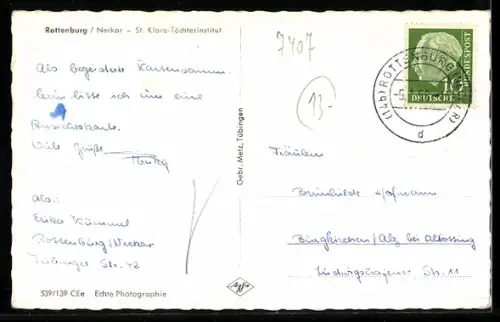 Rottenburg / Neckar – St. Klara-Töchterinstitut
7407
13.-
Als begeisterte Kartensamm-
lerin bitte ich um eine
Ansichtskarte.
Viele Grüße
Erika
Abs:
Erika Kümmel
Rottenburg/Neckar
Tübinger Str. 42
539/139 CEe Echte Photographie
Gebr. Metz, Tübingen
Agfa
(14b) ROTTENBURG
d
10
DEUTSCHE
BUNDESPOST
Fräulein
Brunhilde Hofmann
Burgkirchen/Alz bei Altötting
Str. 11